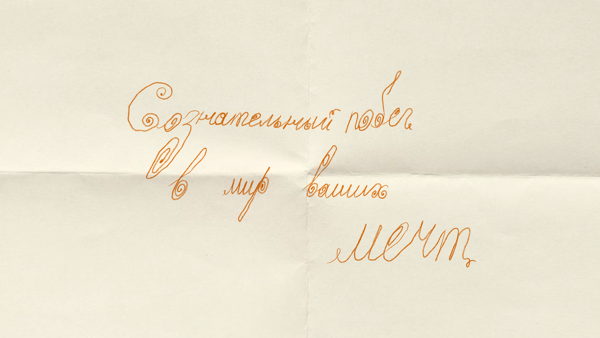 Сознательный побег
в мир ваших
мечт